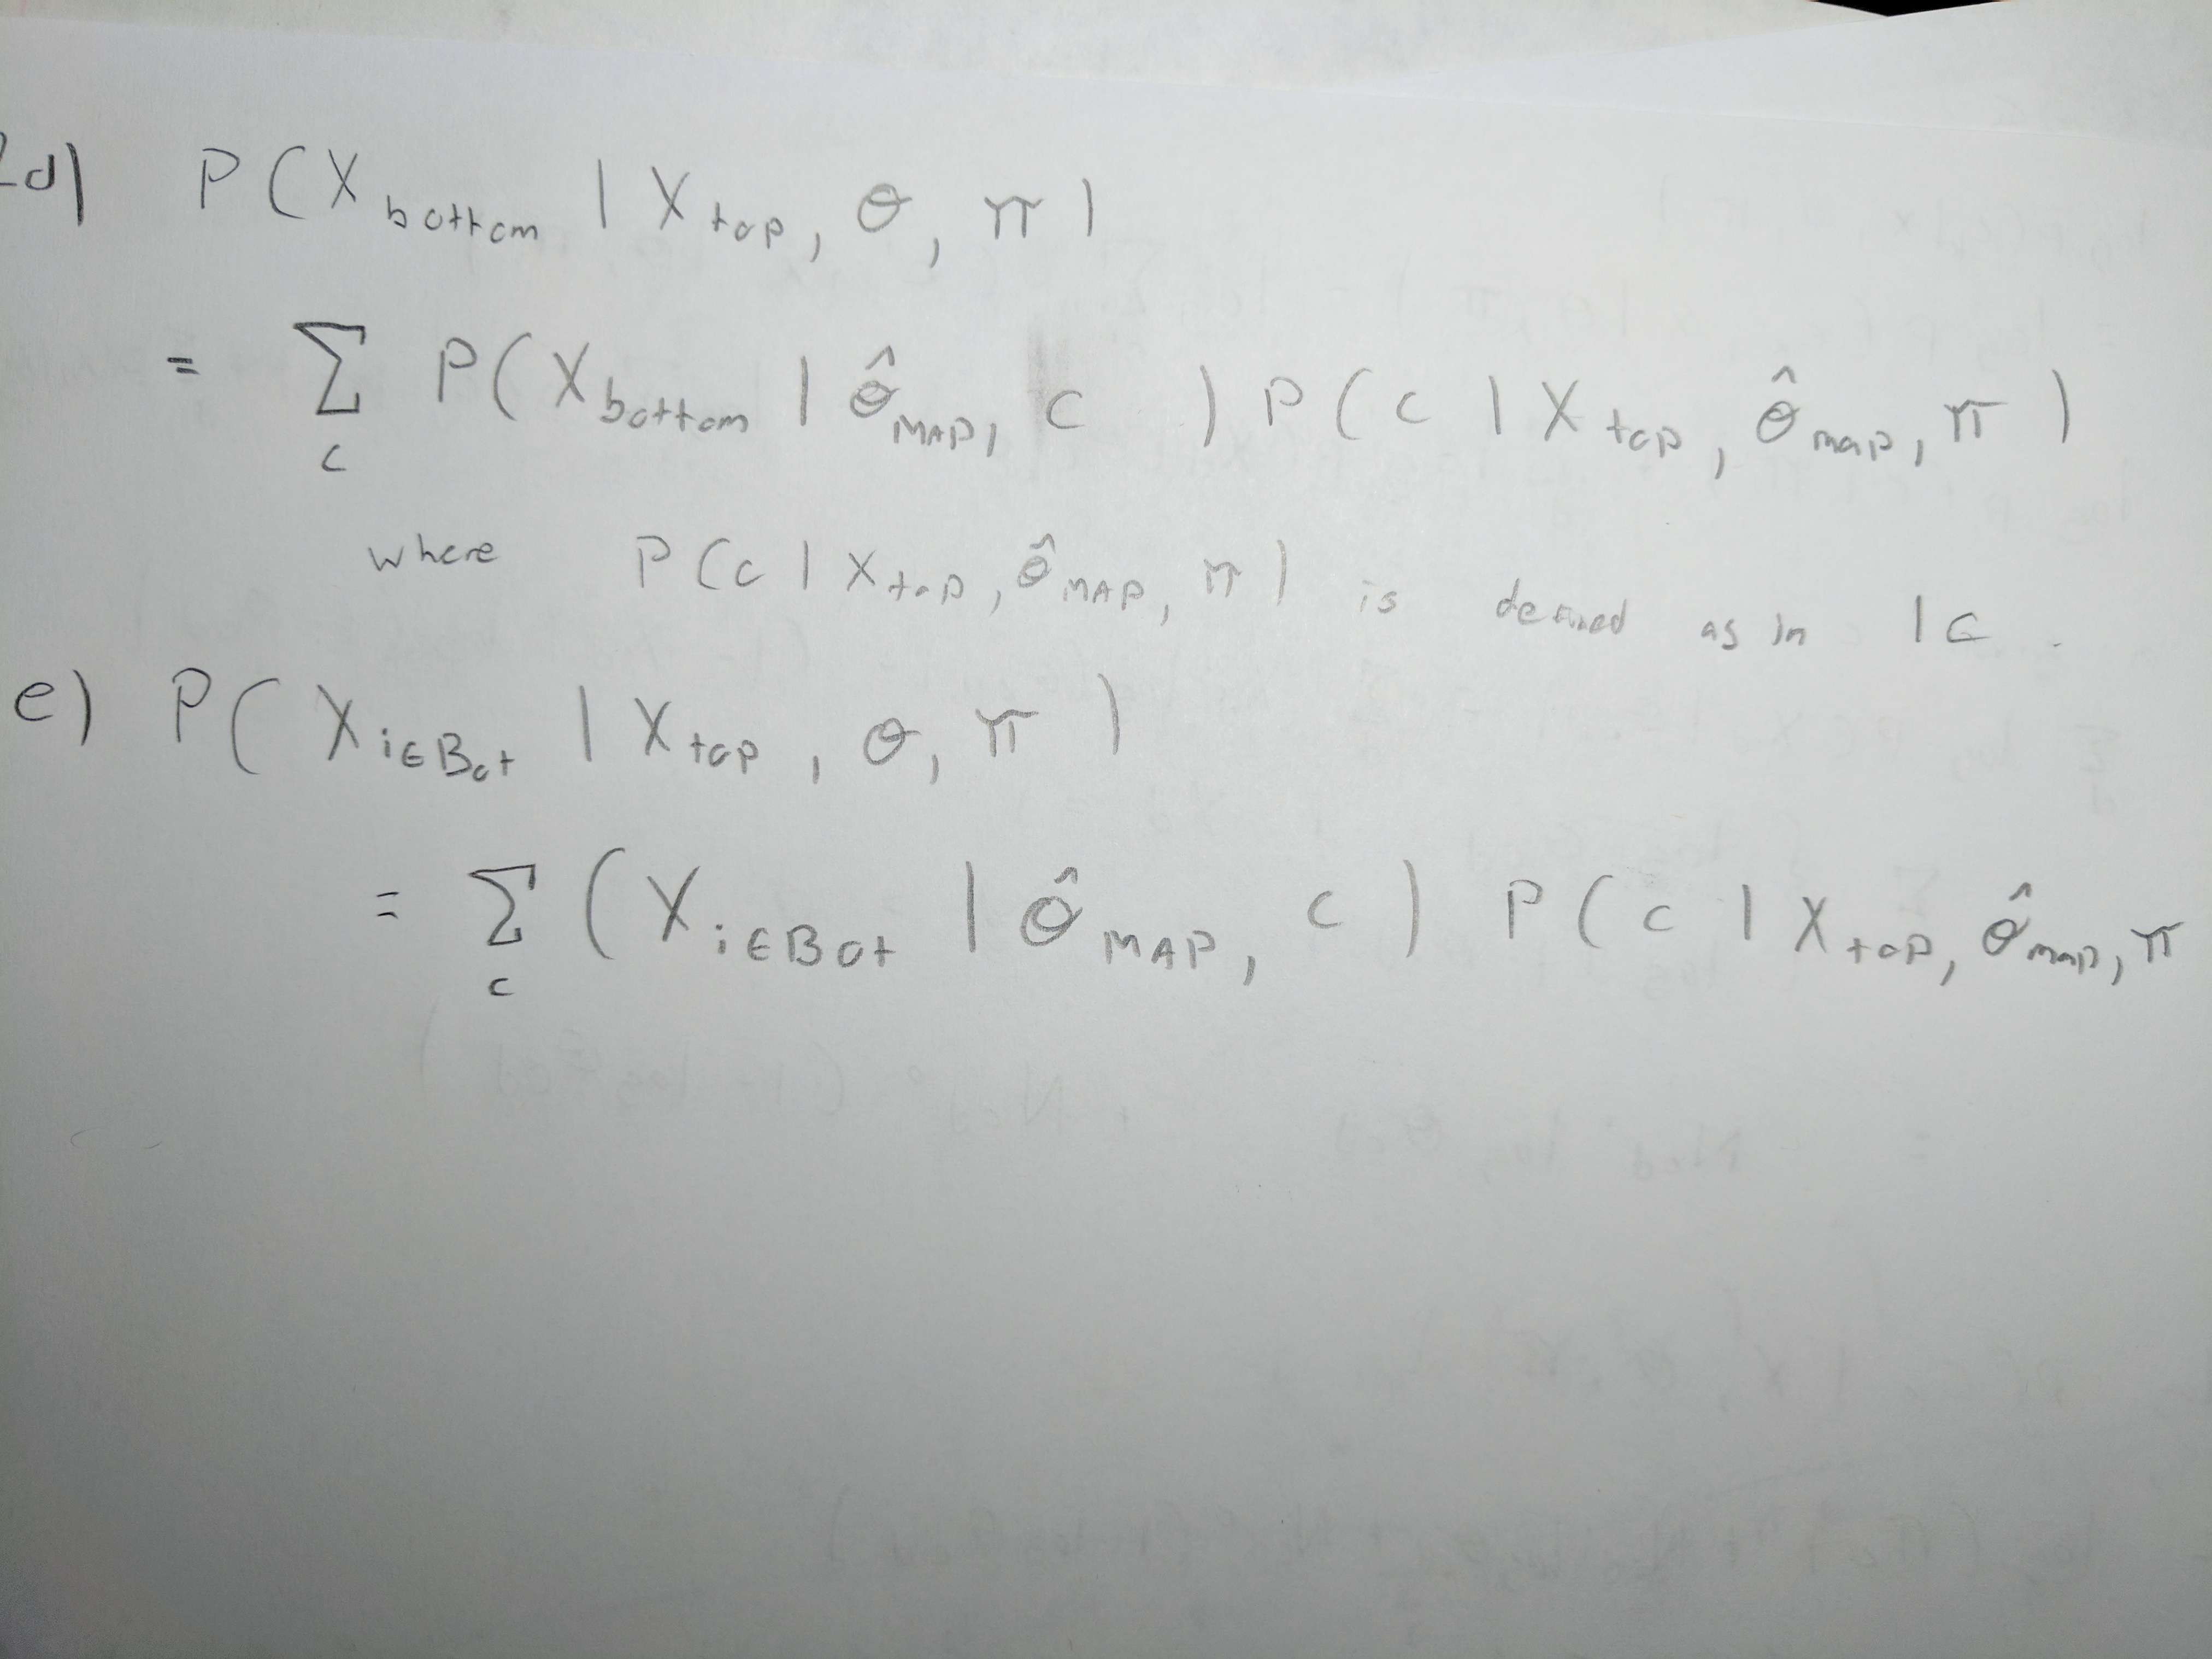 2d) P(X_bottom | X_top, θ, π)
= Σ_c P(X_bottom | θ̂_MAP, c) P(c | X_top, θ̂_map, π)
where P(c | X_top, θ̂_MAP, π) is defined as in 1c.
e) P(X_i∈Bot | X_top, θ, π)
= Σ_c (X_i∈Bot | θ̂_MAP, c) P(c | X_top, θ̂_map, π